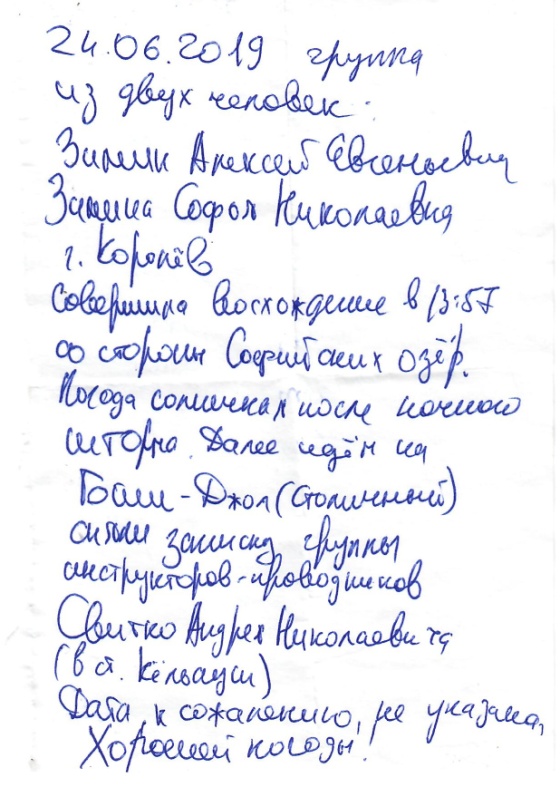 24.06.2019 группа
из двух человек:
Зимин Алексей Евгеньевич
Зимина Софья Николаевна
г. Королёв
Совершила восхождение в 13:57
со стороны Софийских озёр.
Погода солнечная после ночного
шторма. Далее идём на
Баш-Джол (Столичный)
сняли записку группы
инструкторов-проводников
Свитко Андрея Николаевича
(в ст.
Дата, к сожалению, не указана,
Хорошей погоды!